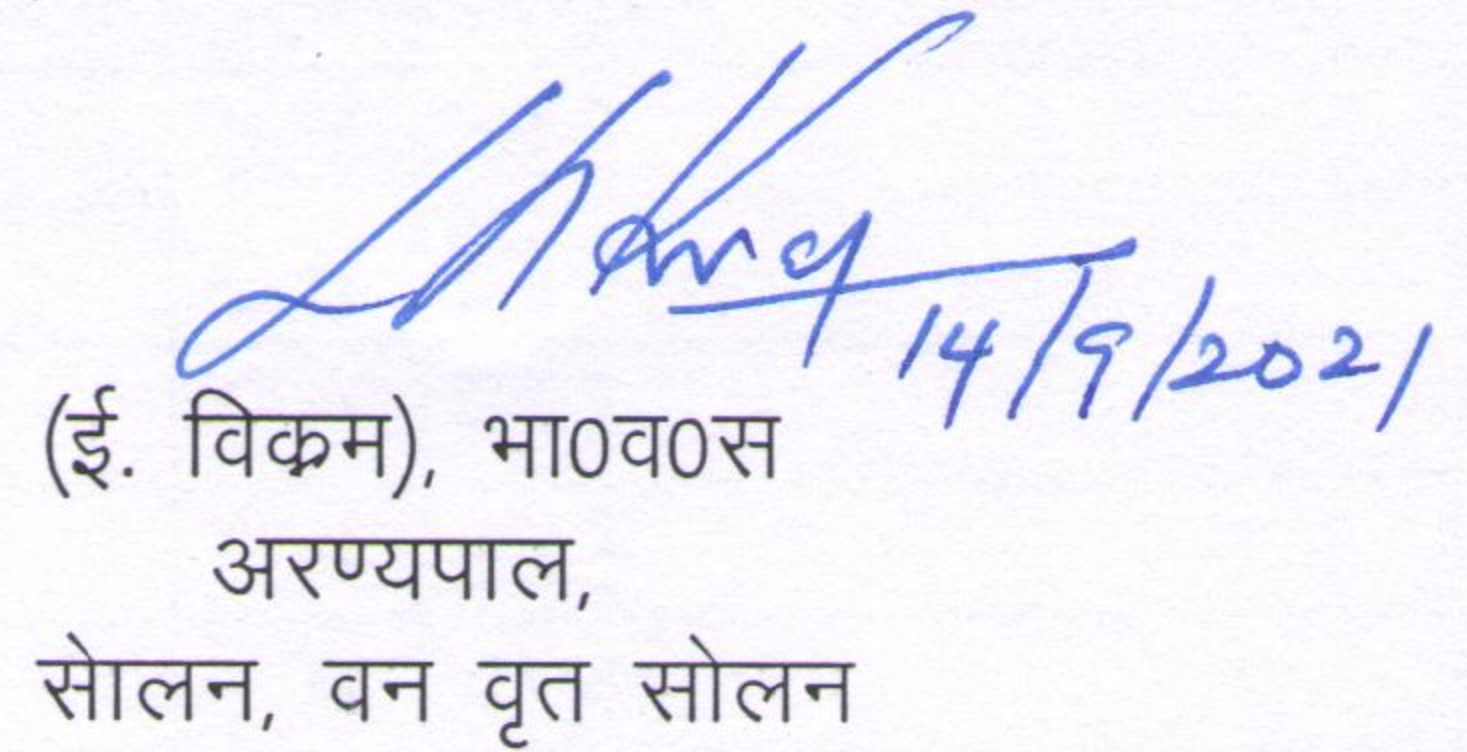 14/9/2021
(ई. विक्रम), भा0व0स
अरण्यपाल,
सोलन, वन वृत सोलन